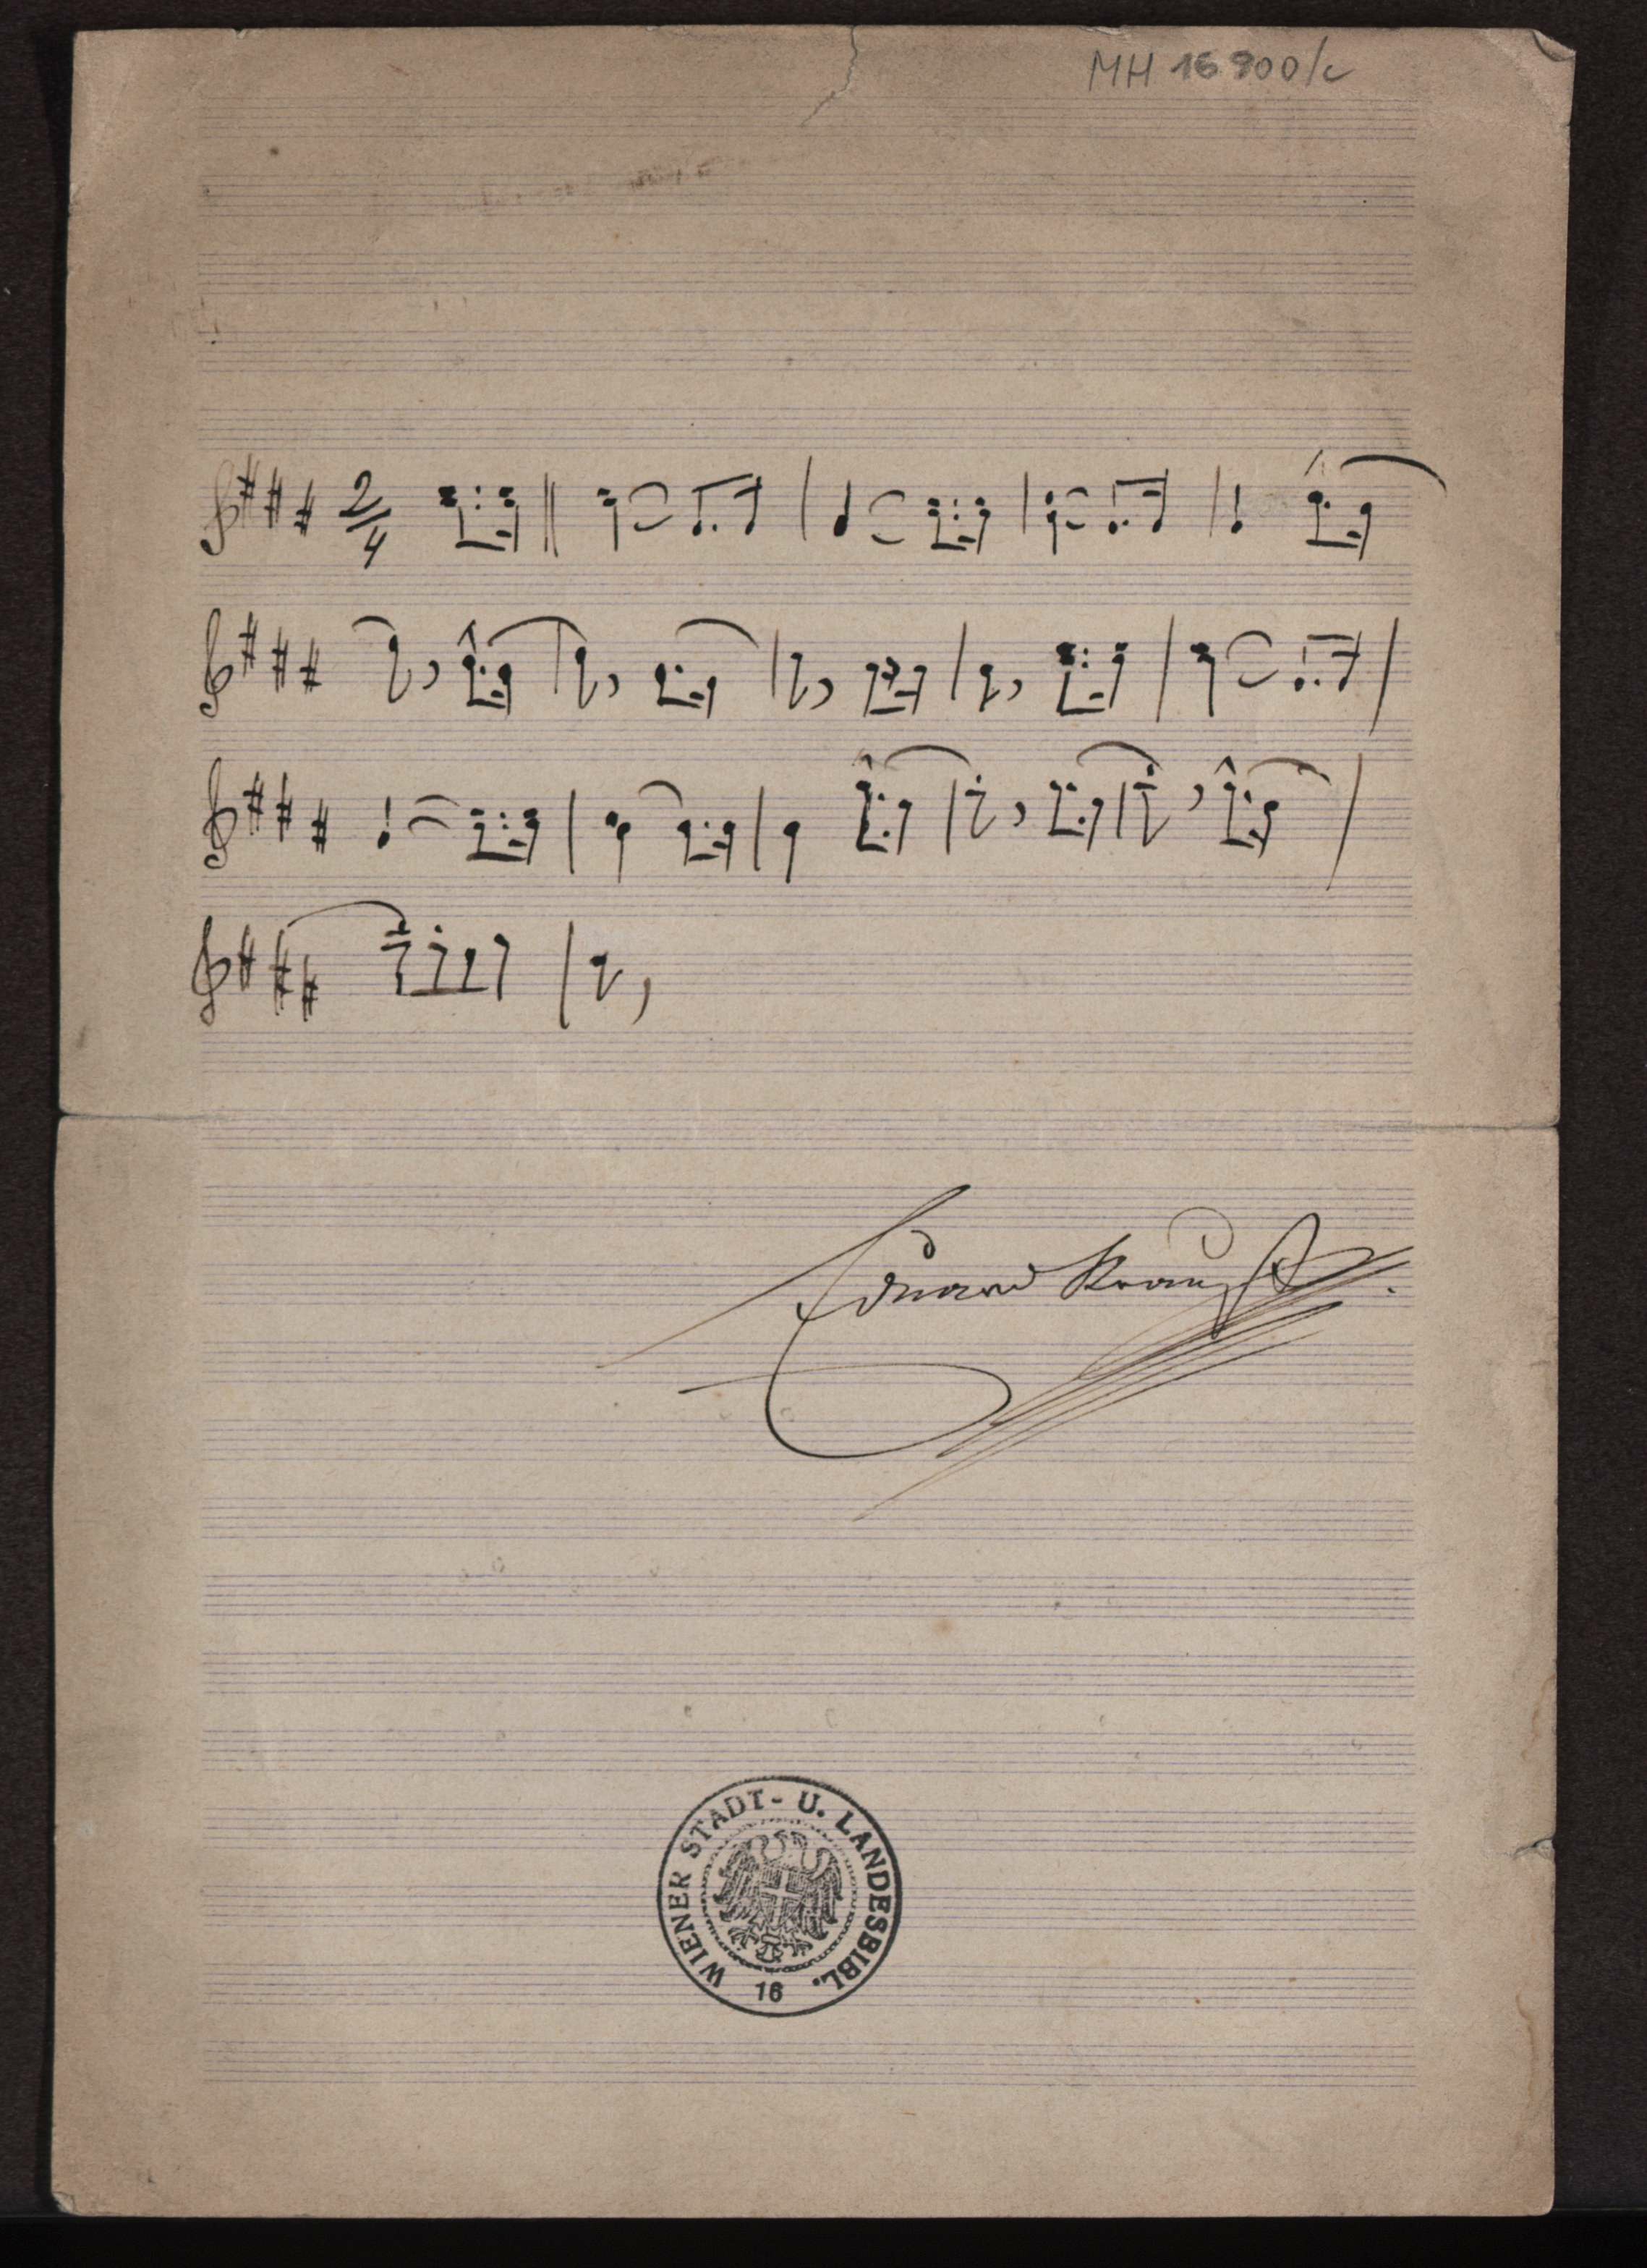 MH 16900/c
2/4
Eduard Strauß
WIENER STADT- U. LANDESBIBL.
16